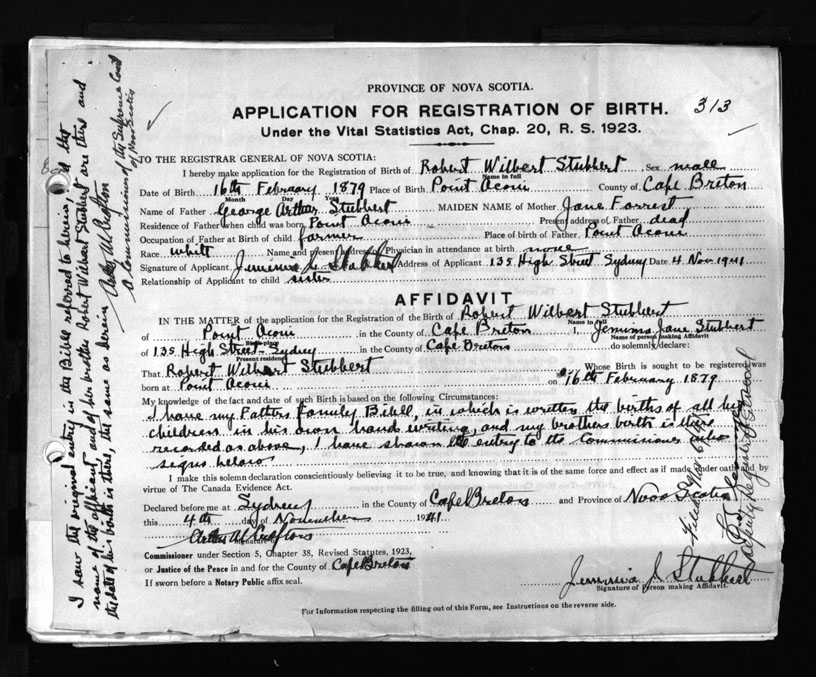 PROVINCE OF NOVA SCOTIA.
APPLICATION FOR REGISTRATION OF BIRTH. 313
Under the Vital Statistics Act, Chap. 20, R. S. 1923.
TO THE REGISTRAR GENERAL OF NOVA SCOTIA:
I hereby make application for the Registration of Birth of Robert Wilbert Stubbert Sex male
Name in full
Date of Birth 16th February 1879 Place of Birth Point Aconi County of Cape Breton
Month Day Year
Name of Father George Arthur Stubbert MAIDEN NAME of Mother Jane Forrest
Residence of Father when child was born Point Aconi Present address of Father dead
Occupation of Father at Birth of child farmer Place of birth of Father Point Aconi
Race white Name and present address of Physician in attendance at birth none
Signature of Applicant Jemima J. Stubbert Address of Applicant 135 High Street Sydney Date 4 Nov 1941
Relationship of Applicant to child sister
AFFIDAVIT
IN THE MATTER of the application for Registration of the Birth of Robert Wilbert Stubbert
Name in full
of Point Aconi in the County of Cape Breton I, Jemima Jane Stubbert
Name of person making Affidavit
of 135 High Street Sydney in the County of Cape Breton do solemnly declare:
Present residence
That Robert Wilbert Stubbert Whose Birth is sought to be registered was
born at Point Aconi on 16th February 1879
My knowledge of the fact and date of such Birth is based on the following Circumstances:
I have my Fathers Family Bible, in which is written the births of all his
children in his own hand writing, and my brothers birth is there
recorded as above, I have shown the entry to the Commissioner who
signs below.
I make this solemn declaration conscientiously believing it to be true, and knowing that it is of the same force and effect as if made under oath and by
virtue of The Canada Evidence Act.
Declared before me at Sydney in the County of Cape Breton and Province of Nova Scotia
this 4th day of November 1941
Commissioner under Section 5, Chapter 38, Revised Statutes, 1923,
or Justice of the Peace in and for the County of Cape Breton
If sworn before a Notary Public affix seal.
Jemima J. Stubbert
Signature of Person making Affidavit.
For Information respecting the filling out of this Form, see Instructions on the reverse side.
I saw the original entry in the Bible referred to herein, and the
name of the affiant, and of her brother Robert Wilbert Stubbert are there and
the date of his birth is there, the same as herein
A Commissioner of the Supreme Court
of Nova Scotia
Deputy Registrar General